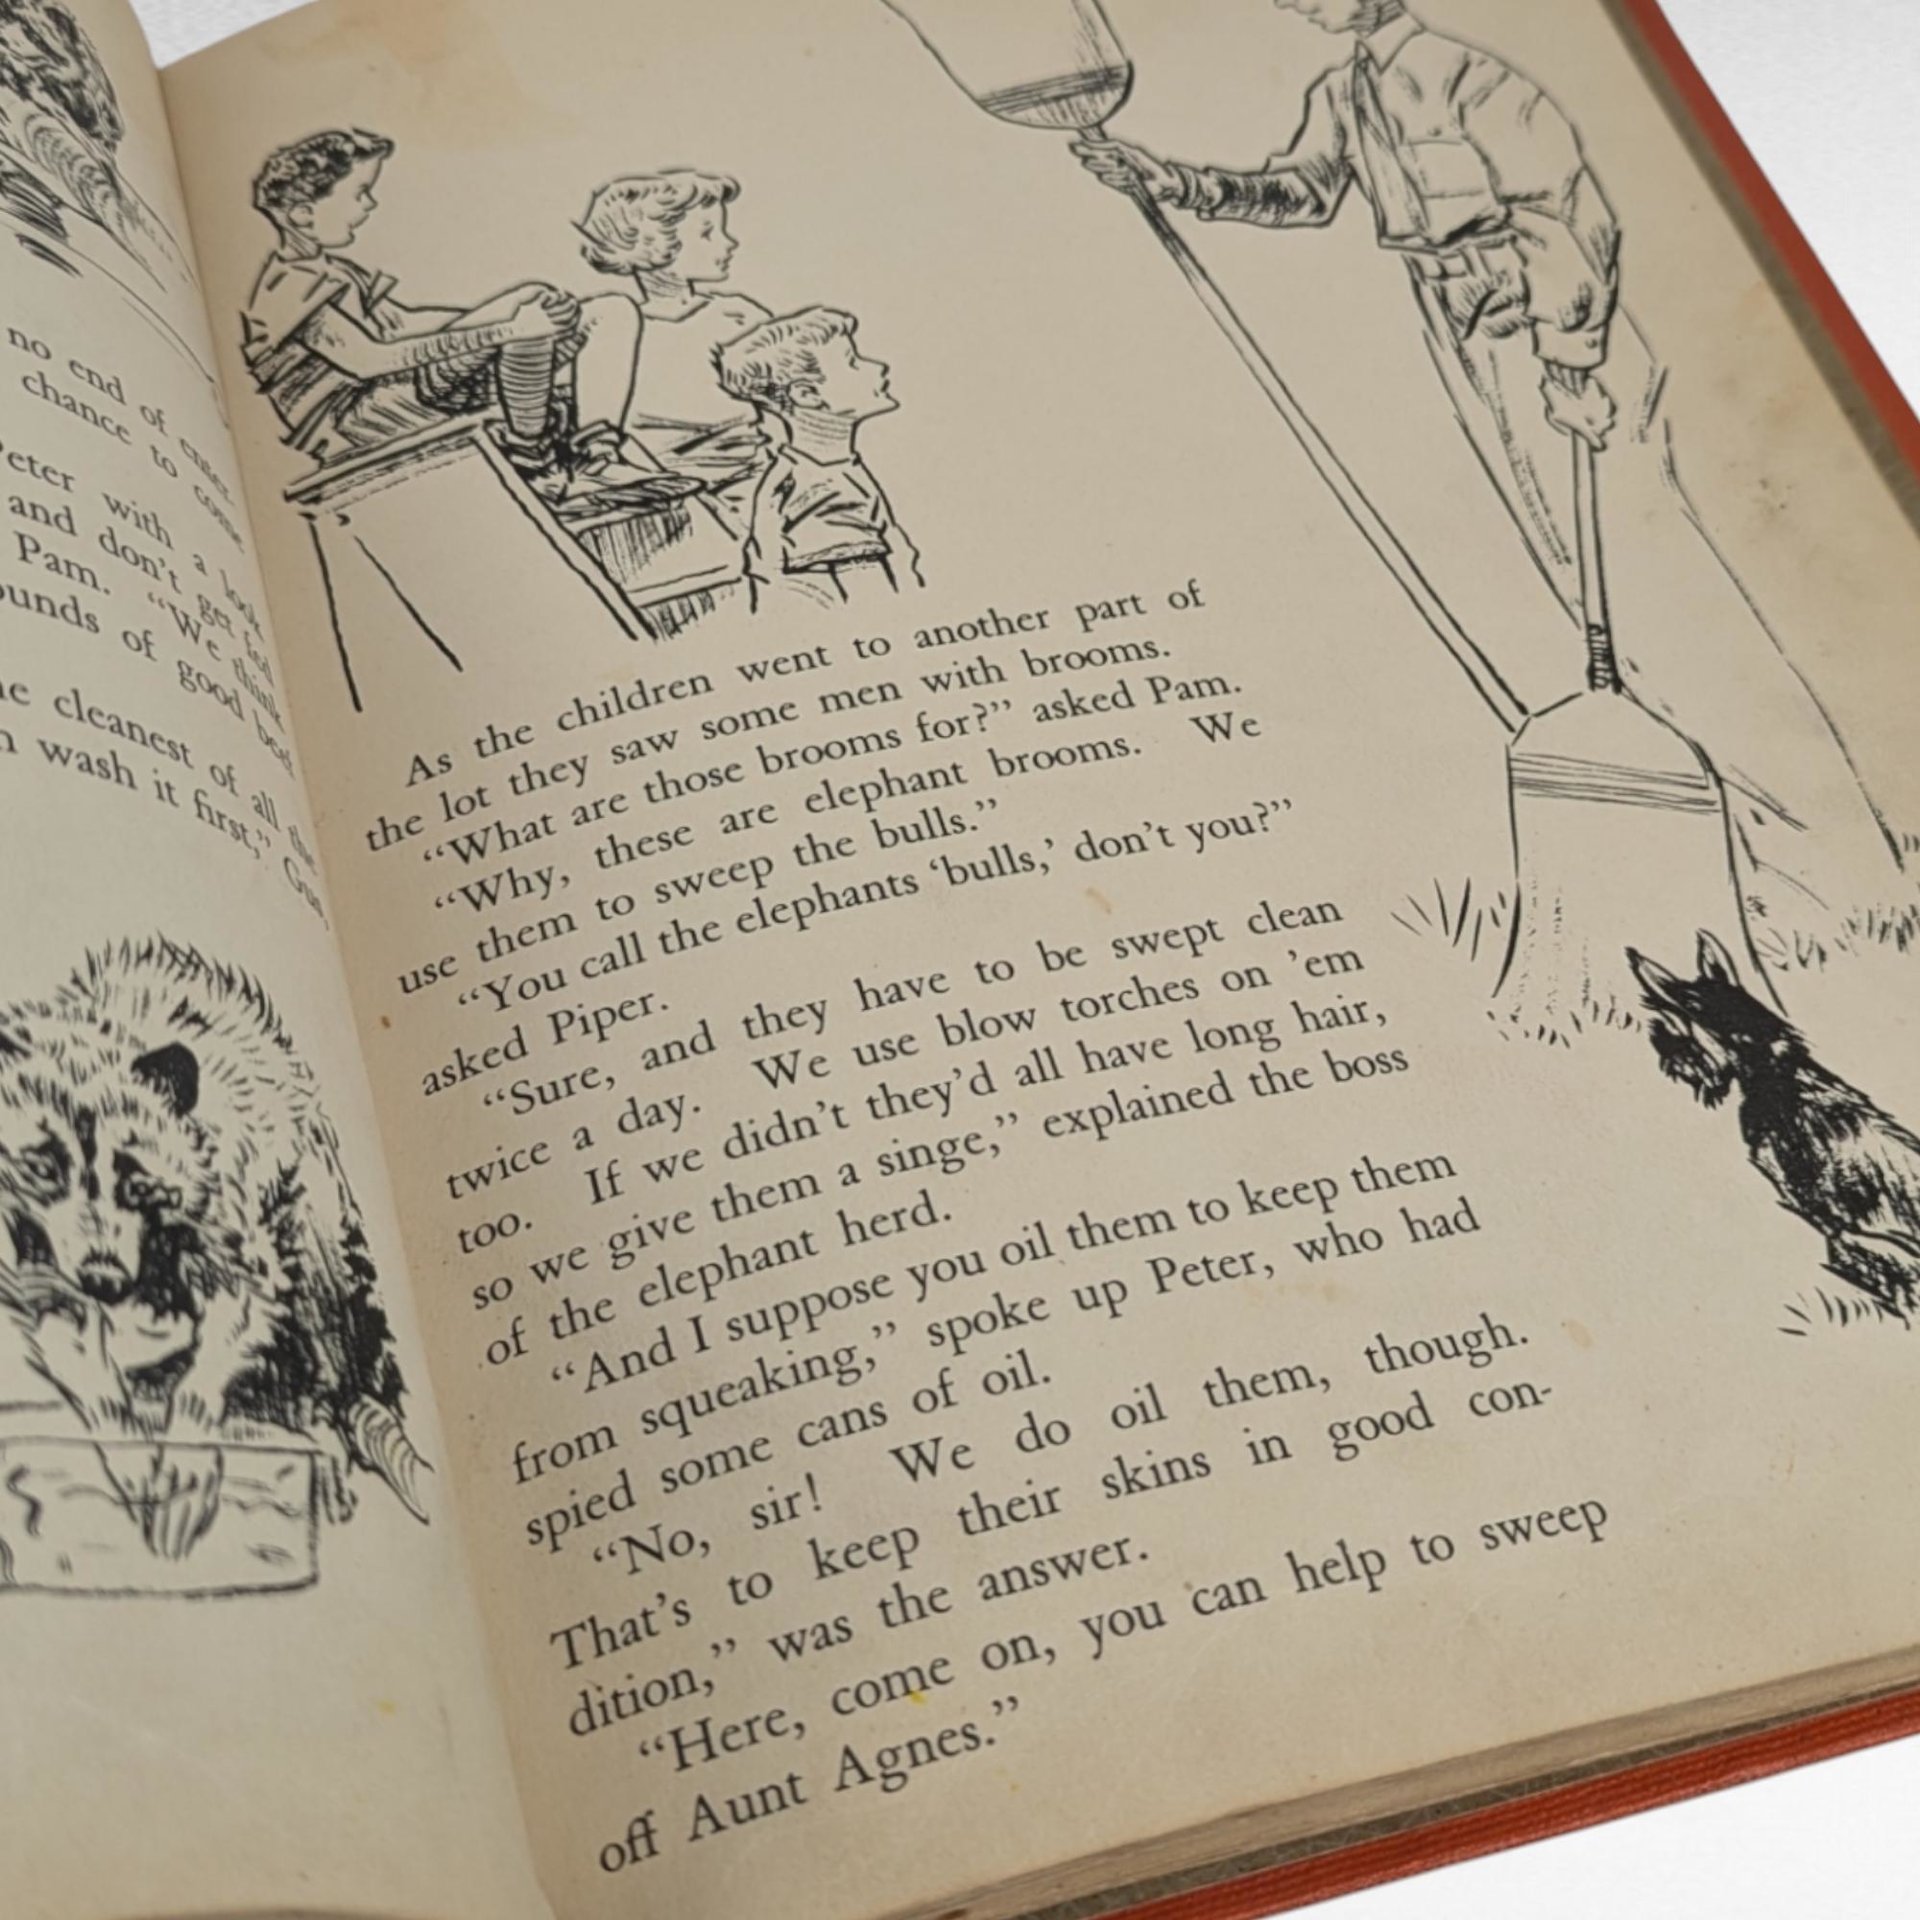 no end of enter-
chance to come
Peter with a look
and don't get fed
Pam. "We think
ounds of good bod
he cleanest of all the
n wash it first," Gus
As the children went to another part of
the lot they saw some men with brooms.
"What are those brooms for?" asked Pam.
"Why, these are elephant brooms. We
use them to sweep the bulls."
"You call the elephants 'bulls,' don't you?"
asked Piper.
"Sure, and they have to be swept clean
twice a day. We use blow torches on 'em
too. If we didn't they'd all have long hair,
so we give them a singe," explained the boss
of the elephant herd.
"And I suppose you oil them to keep them
from squeaking," spoke up Peter, who had
spied some cans of oil.
"No, sir! We do oil them, though.
That's to keep their skins in good con-
dition," was the answer.
"Here, come on, you can help to sweep
off Aunt Agnes."